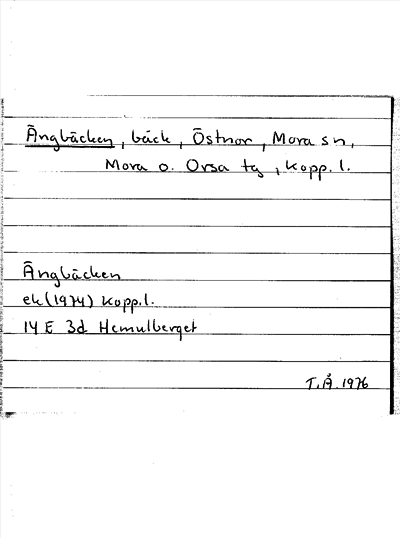 Ängbäcken, bäck, Östnor, Mora sn,
Mora o. Orsa tg, Kopp. l.
Ängbäcken
ek (1974) Kopp. l.
14 E 3d Hemulberget
T.Å. 1976